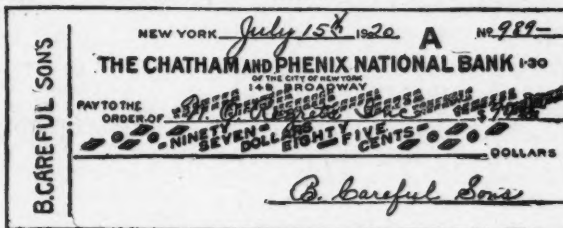 B. CAREFUL SON'S
NEW YORK July 15th 1920 A No 989-
THE CHATHAM AND PHENIX NATIONAL BANK 1-30
OF THE CITY OF NEW YORK
149 BROADWAY
PAY TO THE
ORDER OF Inc $
NINETY DOLLARS EIGHTY FIVE
SEVEN CENTS
DOLLARS
B. Careful Sons